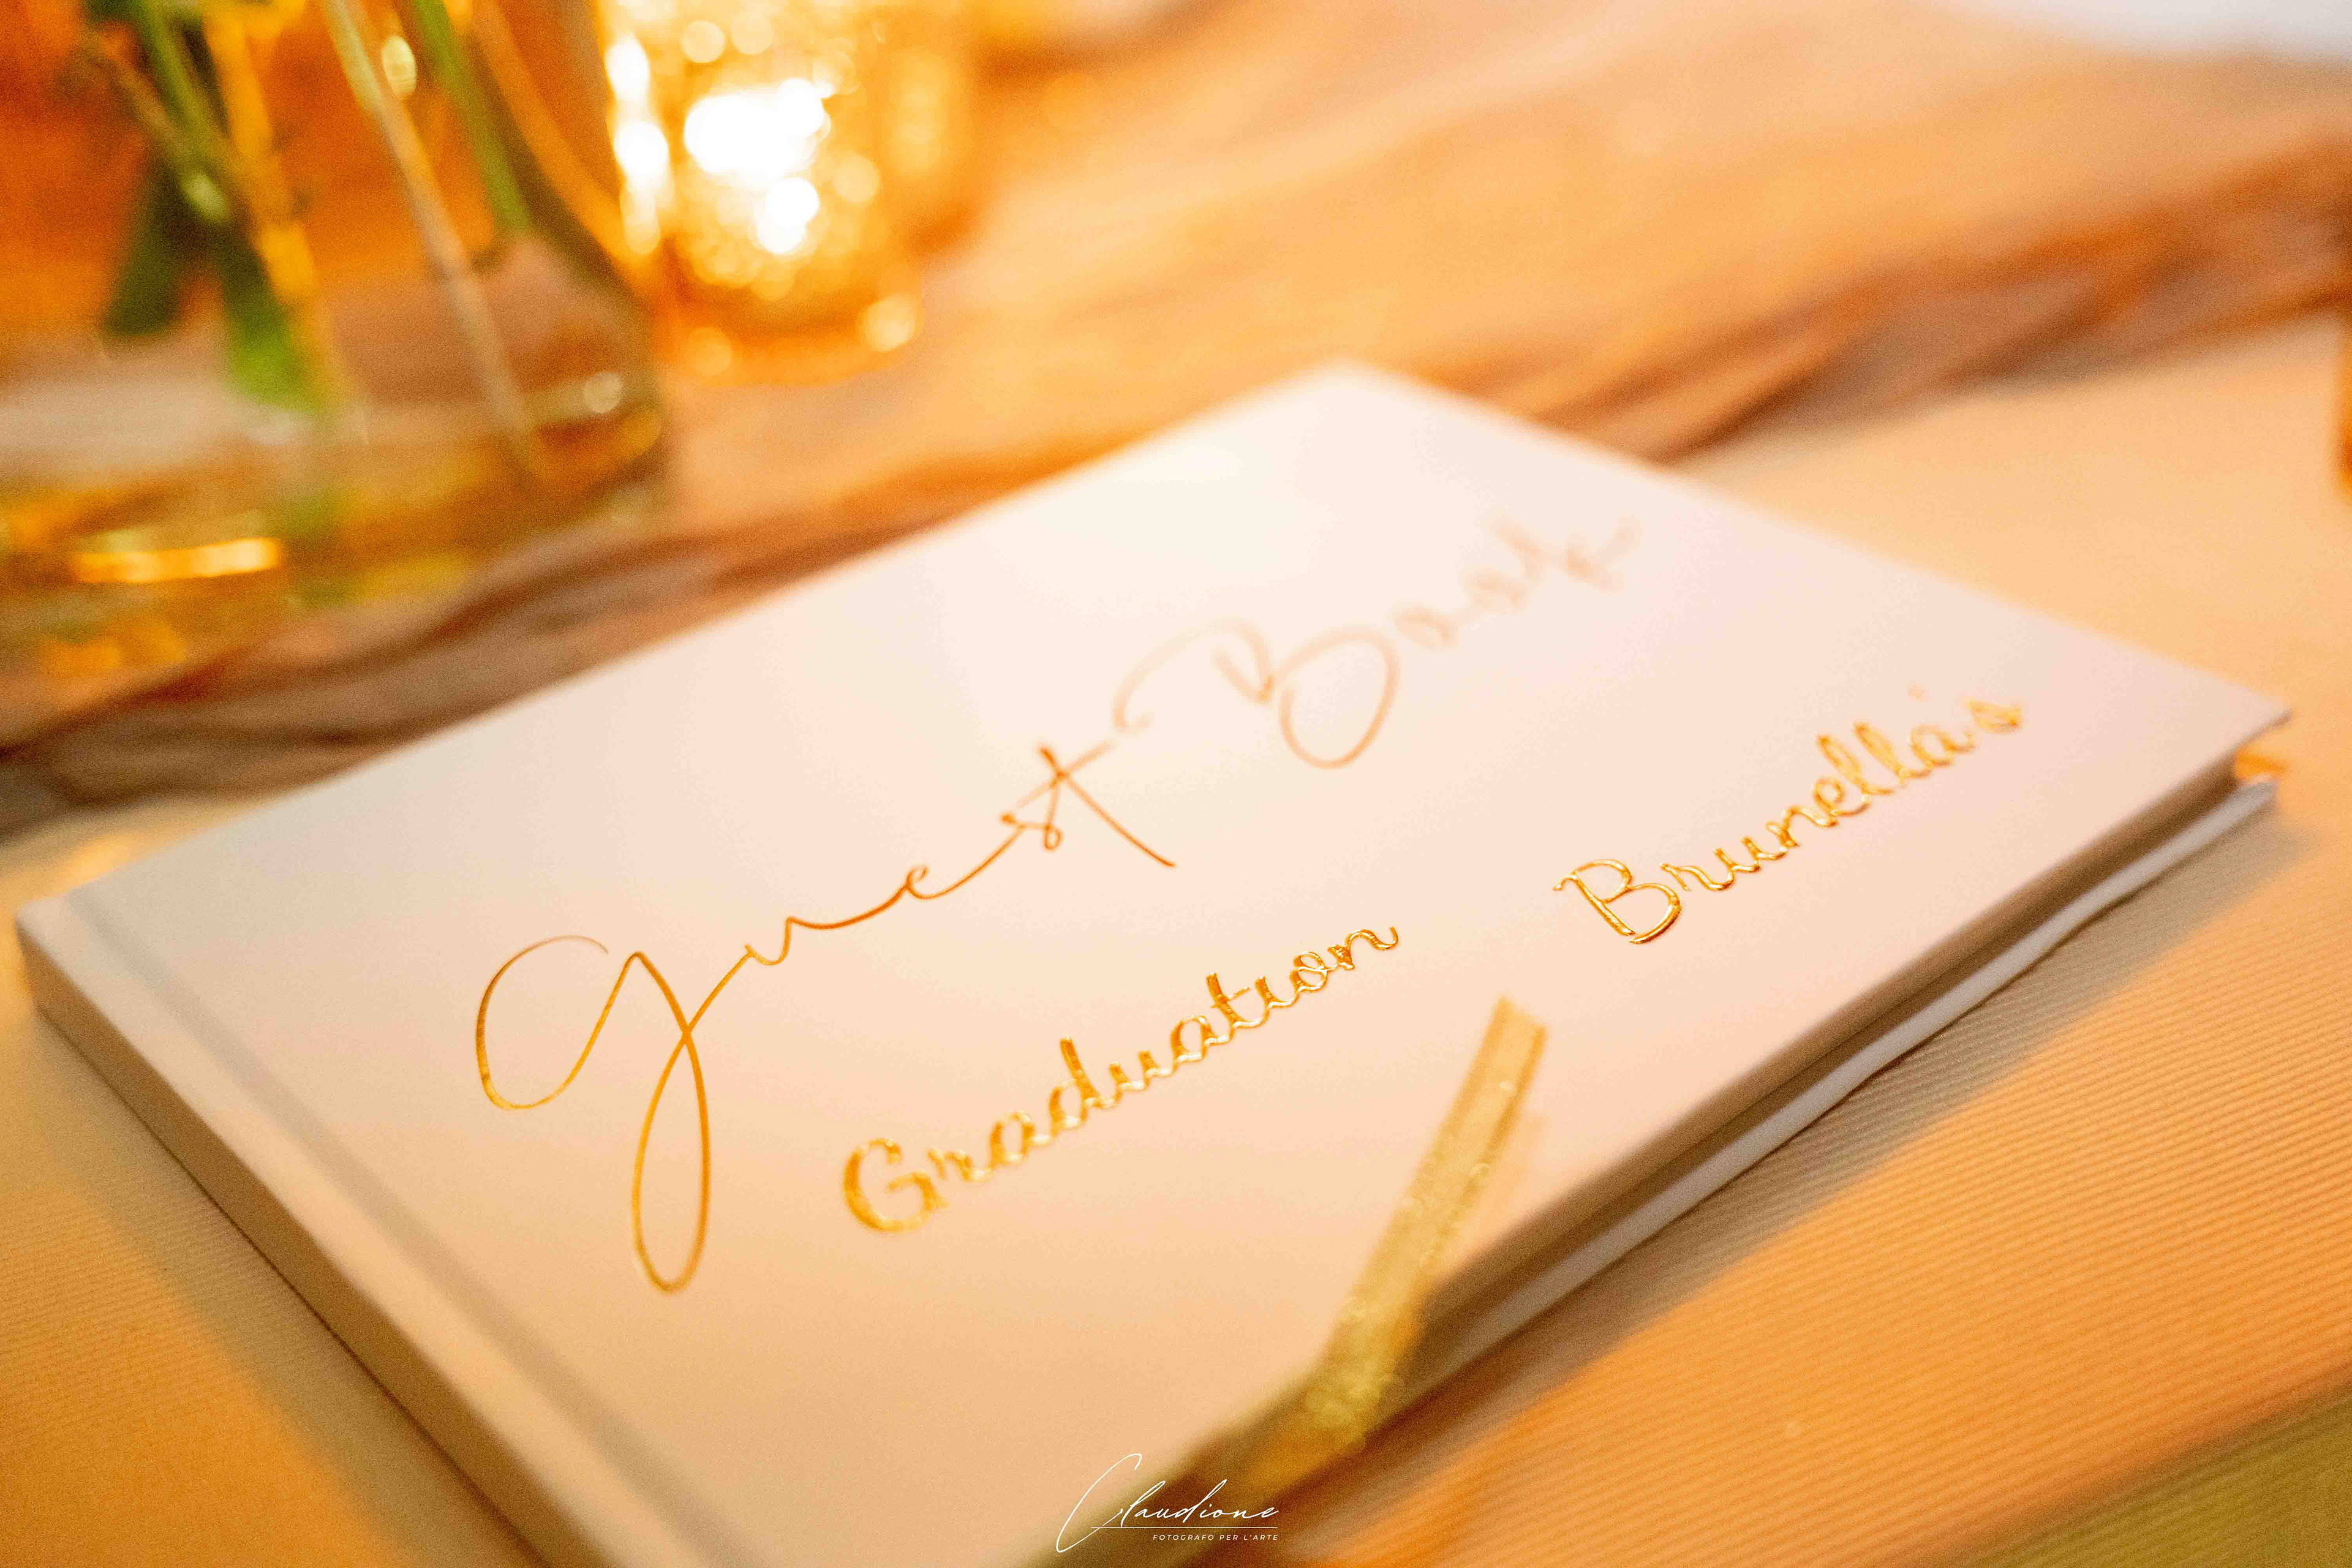 Guest Book
Brunella's
Graduation
Claudione
FOTOGRAFO PER L'ARTE